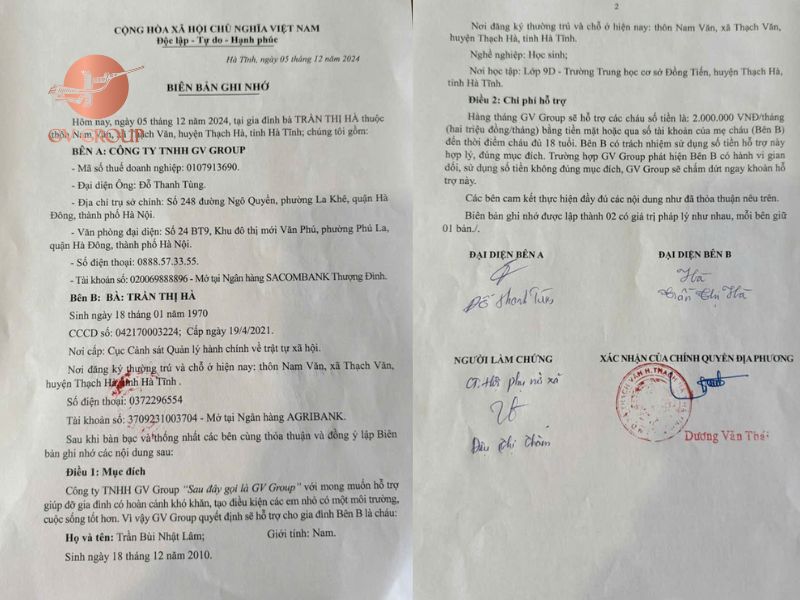 CỘNG HÒA XÃ HỘI CHỦ NGHĨA VIỆT NAM
Độc lập - Tự do - Hạnh phúc
Hà Tĩnh, ngày 05 tháng 12 năm 2024
BIÊN BẢN GHI NHỚ
GV GROUP
Hôm nay, ngày 05 tháng 12 năm 2024, tại gia đình bà TRẦN THỊ HÀ thuộc
thôn Nam Văn, xã Thạch Văn, huyện Thạch Hà, tỉnh Hà Tĩnh; chúng tôi gồm:
BÊN A: CÔNG TY TNHH GV GROUP
- Mã số thuế doanh nghiệp: 0107913690.
- Đại diện Ông: Đỗ Thanh Tùng.
- Địa chỉ trụ sở chính: Số 248 đường Ngô Quyền, phường La Khê, quận Hà
Đông, thành phố Hà Nội.
- Văn phòng đại diện: Số 24 BT9, Khu đô thị mới Văn Phú, phường Phú La,
quận Hà Đông, thành phố Hà Nội.
- Số điện thoại: 0888.57.33.55.
- Tài khoản số: 020069888896 - Mở tại Ngân hàng SACOMBANK Thượng Đình.
Bên B: BÀ: TRẦN THỊ HÀ
Sinh ngày 18 tháng 01 năm 1970
CCCD số: 042170003224; Cấp ngày 19/4/2021.
Nơi cấp: Cục Cảnh sát Quản lý hành chính về trật tự xã hội.
Nơi đăng ký thường trú và chỗ ở hiện nay: thôn Nam Văn, xã Thạch Văn,
huyện Thạch Hà, tỉnh Hà Tĩnh .
Số điện thoại: 0372296554
Tài khoản số: 3709231003704 - Mở tại Ngân hàng AGRIBANK.
Sau khi bàn bạc và thống nhất các bên cùng thỏa thuận và đồng ý lập Biên
bản ghi nhớ các nội dung sau:
Điều 1: Mục đích
Công ty TNHH GV Group “Sau đây gọi là GV Group” với mong muốn hỗ trợ
giúp đỡ gia đình có hoàn cảnh khó khăn, tạo điều kiện các em nhỏ có một môi trường,
cuộc sống tốt hơn. Vì vậy GV Group quyết định sẽ hỗ trợ cho gia đình Bên B là cháu:
Họ và tên: Trần Bùi Nhật Lâm; Giới tính: Nam.
Sinh ngày 18 tháng 12 năm 2010.
2
Nơi đăng ký thường trú và chỗ ở hiện nay: thôn Nam Văn, xã Thạch Văn,
huyện Thạch Hà, tỉnh Hà Tĩnh.
Nghề nghiệp: Học sinh;
Nơi học tập: Lớp 9D - Trường Trung học cơ sở Đồng Tiến, huyện Thạch Hà,
tỉnh Hà Tĩnh.
Điều 2: Chi phí hỗ trợ
Hàng tháng GV Group sẽ hỗ trợ các cháu số tiền là: 2.000.000 VNĐ/tháng
(hai triệu đồng/tháng) bằng tiền mặt hoặc qua số tài khoản của mẹ cháu (Bên B)
đến thời điểm cháu đủ 18 tuổi. Bên B có trách nhiệm sử dụng số tiền hỗ trợ này
hợp lý, đúng mục đích. Trường hợp GV Group phát hiện Bên B có hành vi gian
dối, sử dụng số tiền không đúng mục đích, GV Group sẽ chấm dứt ngay khoản hỗ
trợ này.
Các bên cam kết thực hiện đầy đủ các nội dung như đã thỏa thuận nêu trên.
Biên bản ghi nhớ được lập thành 02 có giá trị pháp lý như nhau, mỗi bên giữ
01 bản./.
ĐẠI DIỆN BÊN A ĐẠI DIỆN BÊN B
Hà
Đỗ Thanh Tùng Trần Thị Hà
NGƯỜI LÀM CHỨNG XÁC NHẬN CỦA CHÍNH QUYỀN ĐỊA PHƯƠNG
CT. Hội phụ nữ xã
Dương Văn Thái